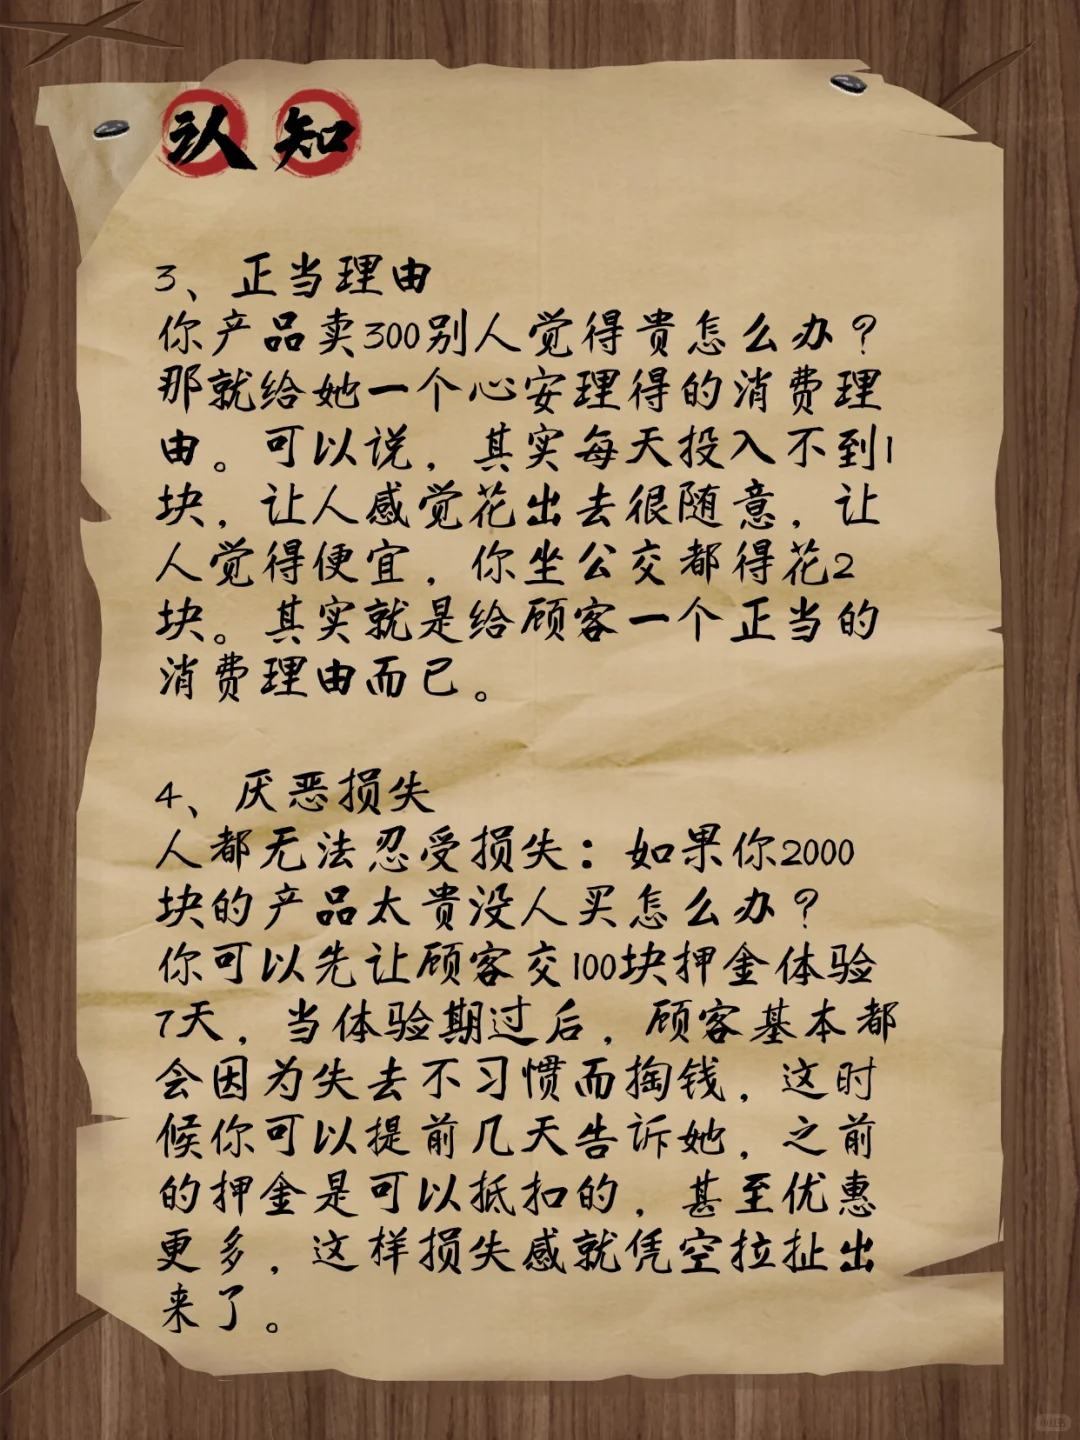 认知
3、正当理由
你产品卖300别人觉得贵怎么办？
那就给她一个心安理得的消费理
由。可以说，其实每天投入不到1
块，让人感觉花出去很随意，让
人觉得便宜，你坐公交都得花2
块。其实就是给顾客一个正当的
消费理由而已。
4、厌恶损失
人都无法忍受损失：如果你2000
块的产品太贵没人买怎么办？
你可以先让顾客交100块押金体验
7天，当体验期过后，顾客基本都
会因为失去不习惯而掏钱，这时
候你可以提前几天告诉她，之前
的押金是可以抵扣的，甚至优惠
更多，这样损失感就凭空拉扯出
来了。